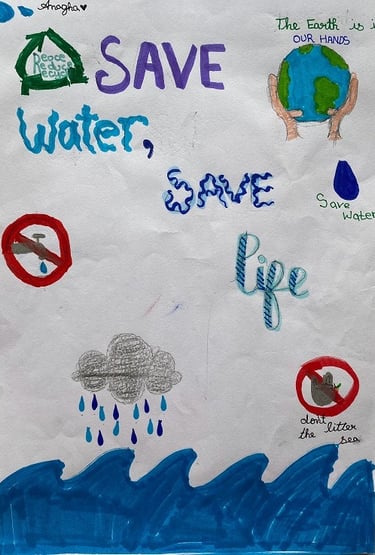 Anagha
The Earth is i
OUR HANDS
Reduce
SAVE
Water,
SAVE
Save
Water
life
dont litter
the sea